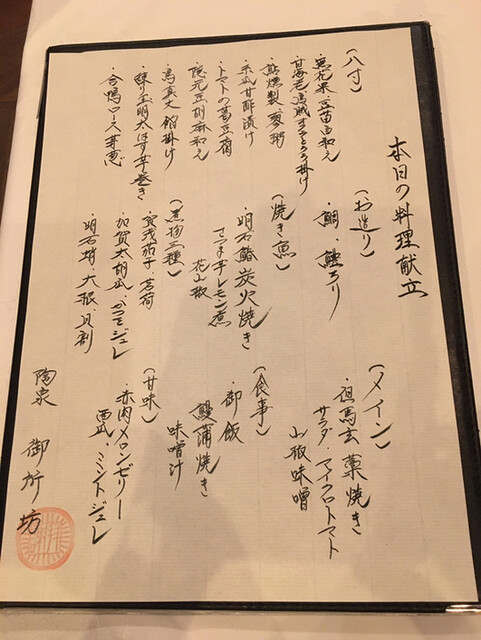 本日の料理献立
(八寸)
・無花果 豆苗白和え
・甘海老 烏賊 すだちとろろ掛け
・鮎燻製 蓼粥
・米瓜甘酢漬け
・トマトの葛豆腐
・隠元豆胡麻和え
・鳥真丈 餡掛け
・錬り玉明太はす芋巻き
・合鴨ロース 芽葱
(お造り)
・鯛 ・鱧ちり
(焼き魚)
・明石鱸炭火焼き
さつま芋レモン煮
花山椒
(煮物三種)
・賀茂茄子・茗荷
・加賀太胡瓜・かつをジュレ
・明石蛸・大根・貝割
(メイン)
・但馬玄 藁焼き
サラダ・マイクロトマト
山椒味噌
(食事)
・御飯
鰻蒲焼き
味噌汁
(甘味)
・赤肉メロンゼリー
西瓜・ミントジュレ
陶泉 御所坊